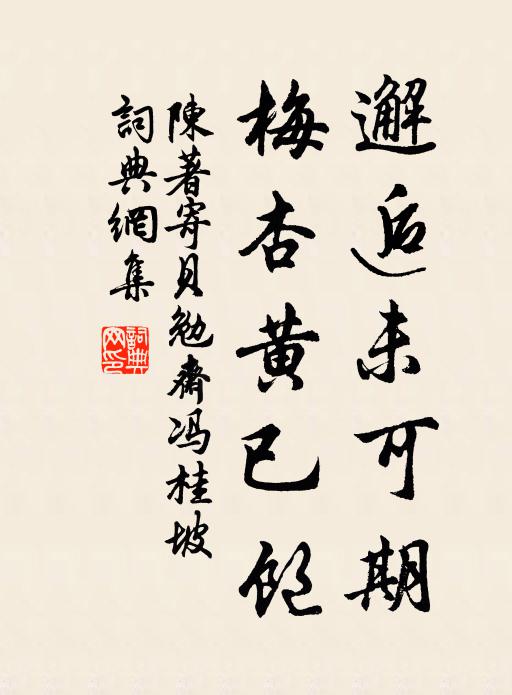 邂逅未可期
梅杏黄已飽
陳著寄貝勉齋馮桂坡
詞典網集
詞典
网印